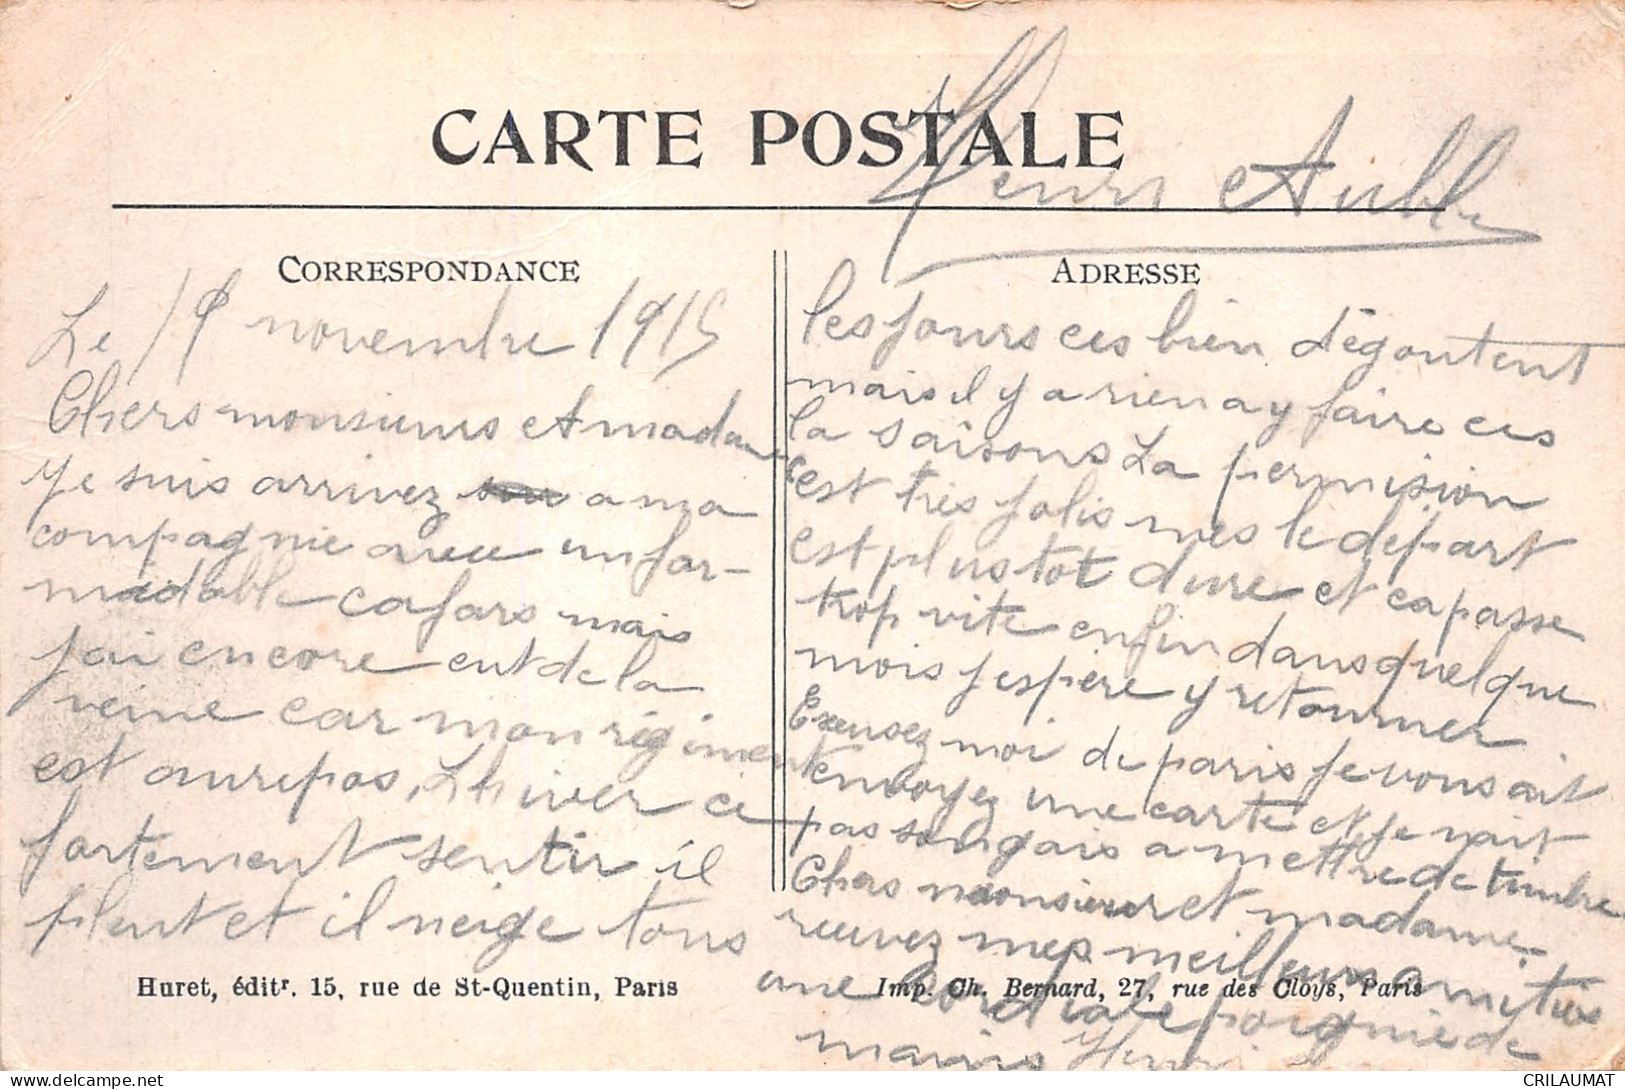 CARTE POSTALE
Henri Aubl
CORRESPONDANCE
Le novembre 1915
Chers monsieurs et madam
Je suis arrivez a ma
compagnie avec un for-
madable cafars mais
jai encore eut de la
veine car mon régiment
est au repos, Lhiver ce
fortement sentir il
pleut et il neige tous
ADRESSE
les jours ces bien dégoutent
mais il y a rien a y faire ces
la saisons La permision
est très jolis mes le départ
est plus tot dure et ca passe
trop vite enfin dans quelque
mois jespère y retourner
Excusez moi de paris je vous ait
envoyez une carte et je nait
pas songais a mettre de timbre
Chers monsieur et madame
reuvez mes meilleurs amitiés
une cordiale poignie de
mains Henri
Huret, éditr. 15, rue de St-Quentin, Paris
Imp. Ch. Bernard, 27, rue des Cloys, Paris
CRILAUMAT